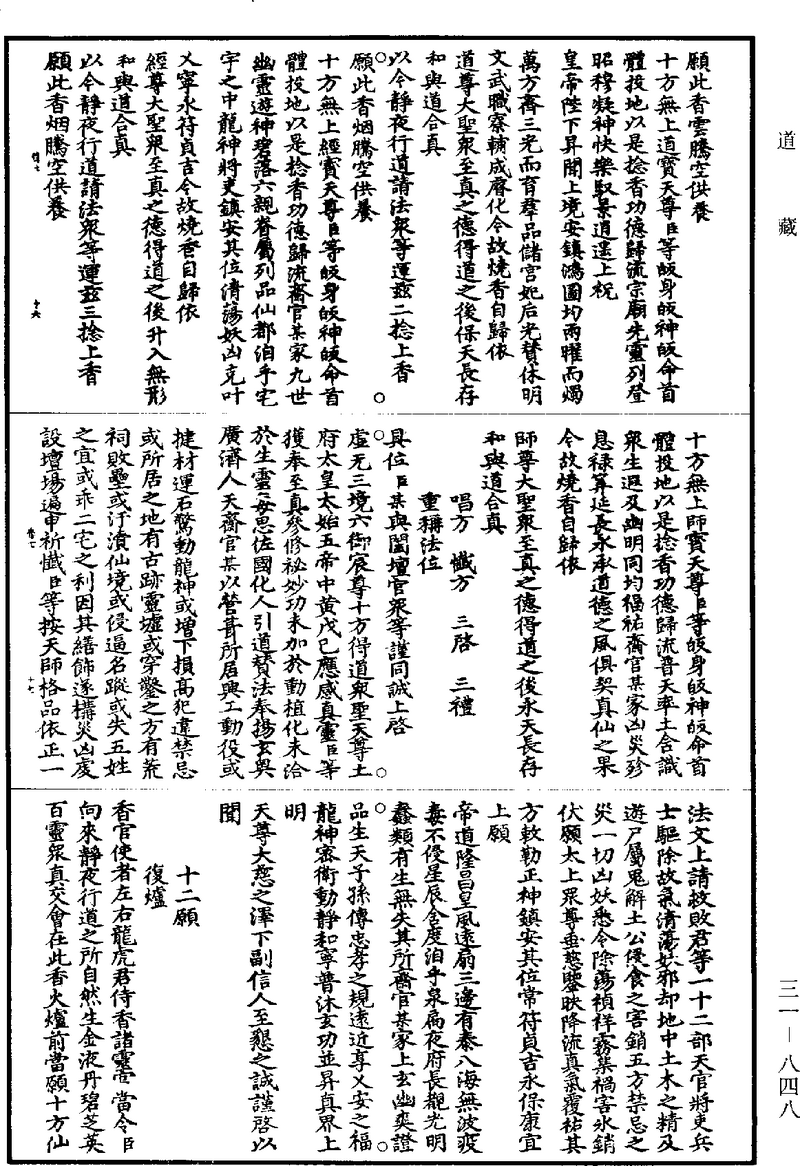 道藏
願此香雲騰空供養
十方無上道寶天尊臣等皈身皈神皈命首
體投地以是捻香功德歸流宗廟先靈列登
昭穆凝神快樂馭景逍遥上祝
皇帝陛下昇聞上境安鎮鴻圖均兩曜而燭
萬方齊三光而育羣品儲宮妃后光贊休明
文武職寮輔成麻化令故燒香自歸依
道尊大聖衆至真之德得道之後保天長存
和與道合真
以今靜夜行道請法衆等運兹二捻上香
願此香烟騰空供養
十方無上經寶天尊臣等皈身皈神皈命首
體投地以是捻香功德歸流齋官某家九世
幽靈遊神碧落六親眷屬列品仙都洎乎宅
宇之中龍神將吏鎮安其位清蕩妖凶克叶
乂寧永符貞吉令故燒香自歸依
經尊大聖衆至真之德得道之後升入無形
和與道合真
以今靜夜行道請法衆等運兹三捻上香
願此香烟騰空供養
卷七
十六
十方無上師寶天尊臣等皈身皈神皈命首
體投地以是捻香功德歸流普天率土含識
衆生遐及幽明同均福祐齋官某家凶災殄
息禄筭延長永承道德之風俱契真仙之果
令故燒香自歸依
師尊大聖衆至真之德得道之後永天長存
和與道合真
唱方 懺方 三啓 三禮
重稱法位
具位臣某與闔壇官衆等謹同誠上啓
虚无三境六御宸尊十方得道衆聖天尊土
府太皇太始五帝中黄戊己應感真靈臣等
獲奉至真叅修祕妙功未加於動植化未洽
於生靈每思佐國化人引道賛法奉揚玄奥
廣濟人天齋官某以營葺所居興工動役或
揵材運石驚動龍神或增下損高犯違禁忌
或所居之地有古跡靈墟或穿鑿之方有荒
祠敗壘或汙漬仙境或侵逼名蹤或失五姓
之宜或乖二宅之利因其繕飾遂構災凶處
設壇場遍申祈懺臣等按天師格品依正一
卷七
十七
法文上請救敗君等一十二部天官將吏兵
士驅除故氣清蕩妖邪却地中土木之精及
遊尸屬鬼解土公侵食之害銷五方禁忌之
災一切凶妖悉令除蕩禎祥霧集禍害氷銷
伏願太上衆尊垂慈鑒昳降流真氣覆祐其
方敕勒正神鎮安其位常符貞吉永保康宜
上願
帝道隆昌皇風遠扇三邊有泰八海無波疫
毒不侵星辰合度洎乎泉扃夜府長覩光明
蠢類有生無失其所齋官某家上玄幽奕證
品生天子孫傳忠孝之規遠近享乂安之福
龍神密衛動靜和寧普沐玄功並昇真界上
明
天尊大慈之澤下副信人至懇之誠謹啓以
聞
十二願
復爐
香官使者左右龍虎君侍香諸靈官當令臣
向來靜夜行道之所自然生金液丹碧芝英
百靈衆真交會在此香火爐前當願十方仙
三一—八四八